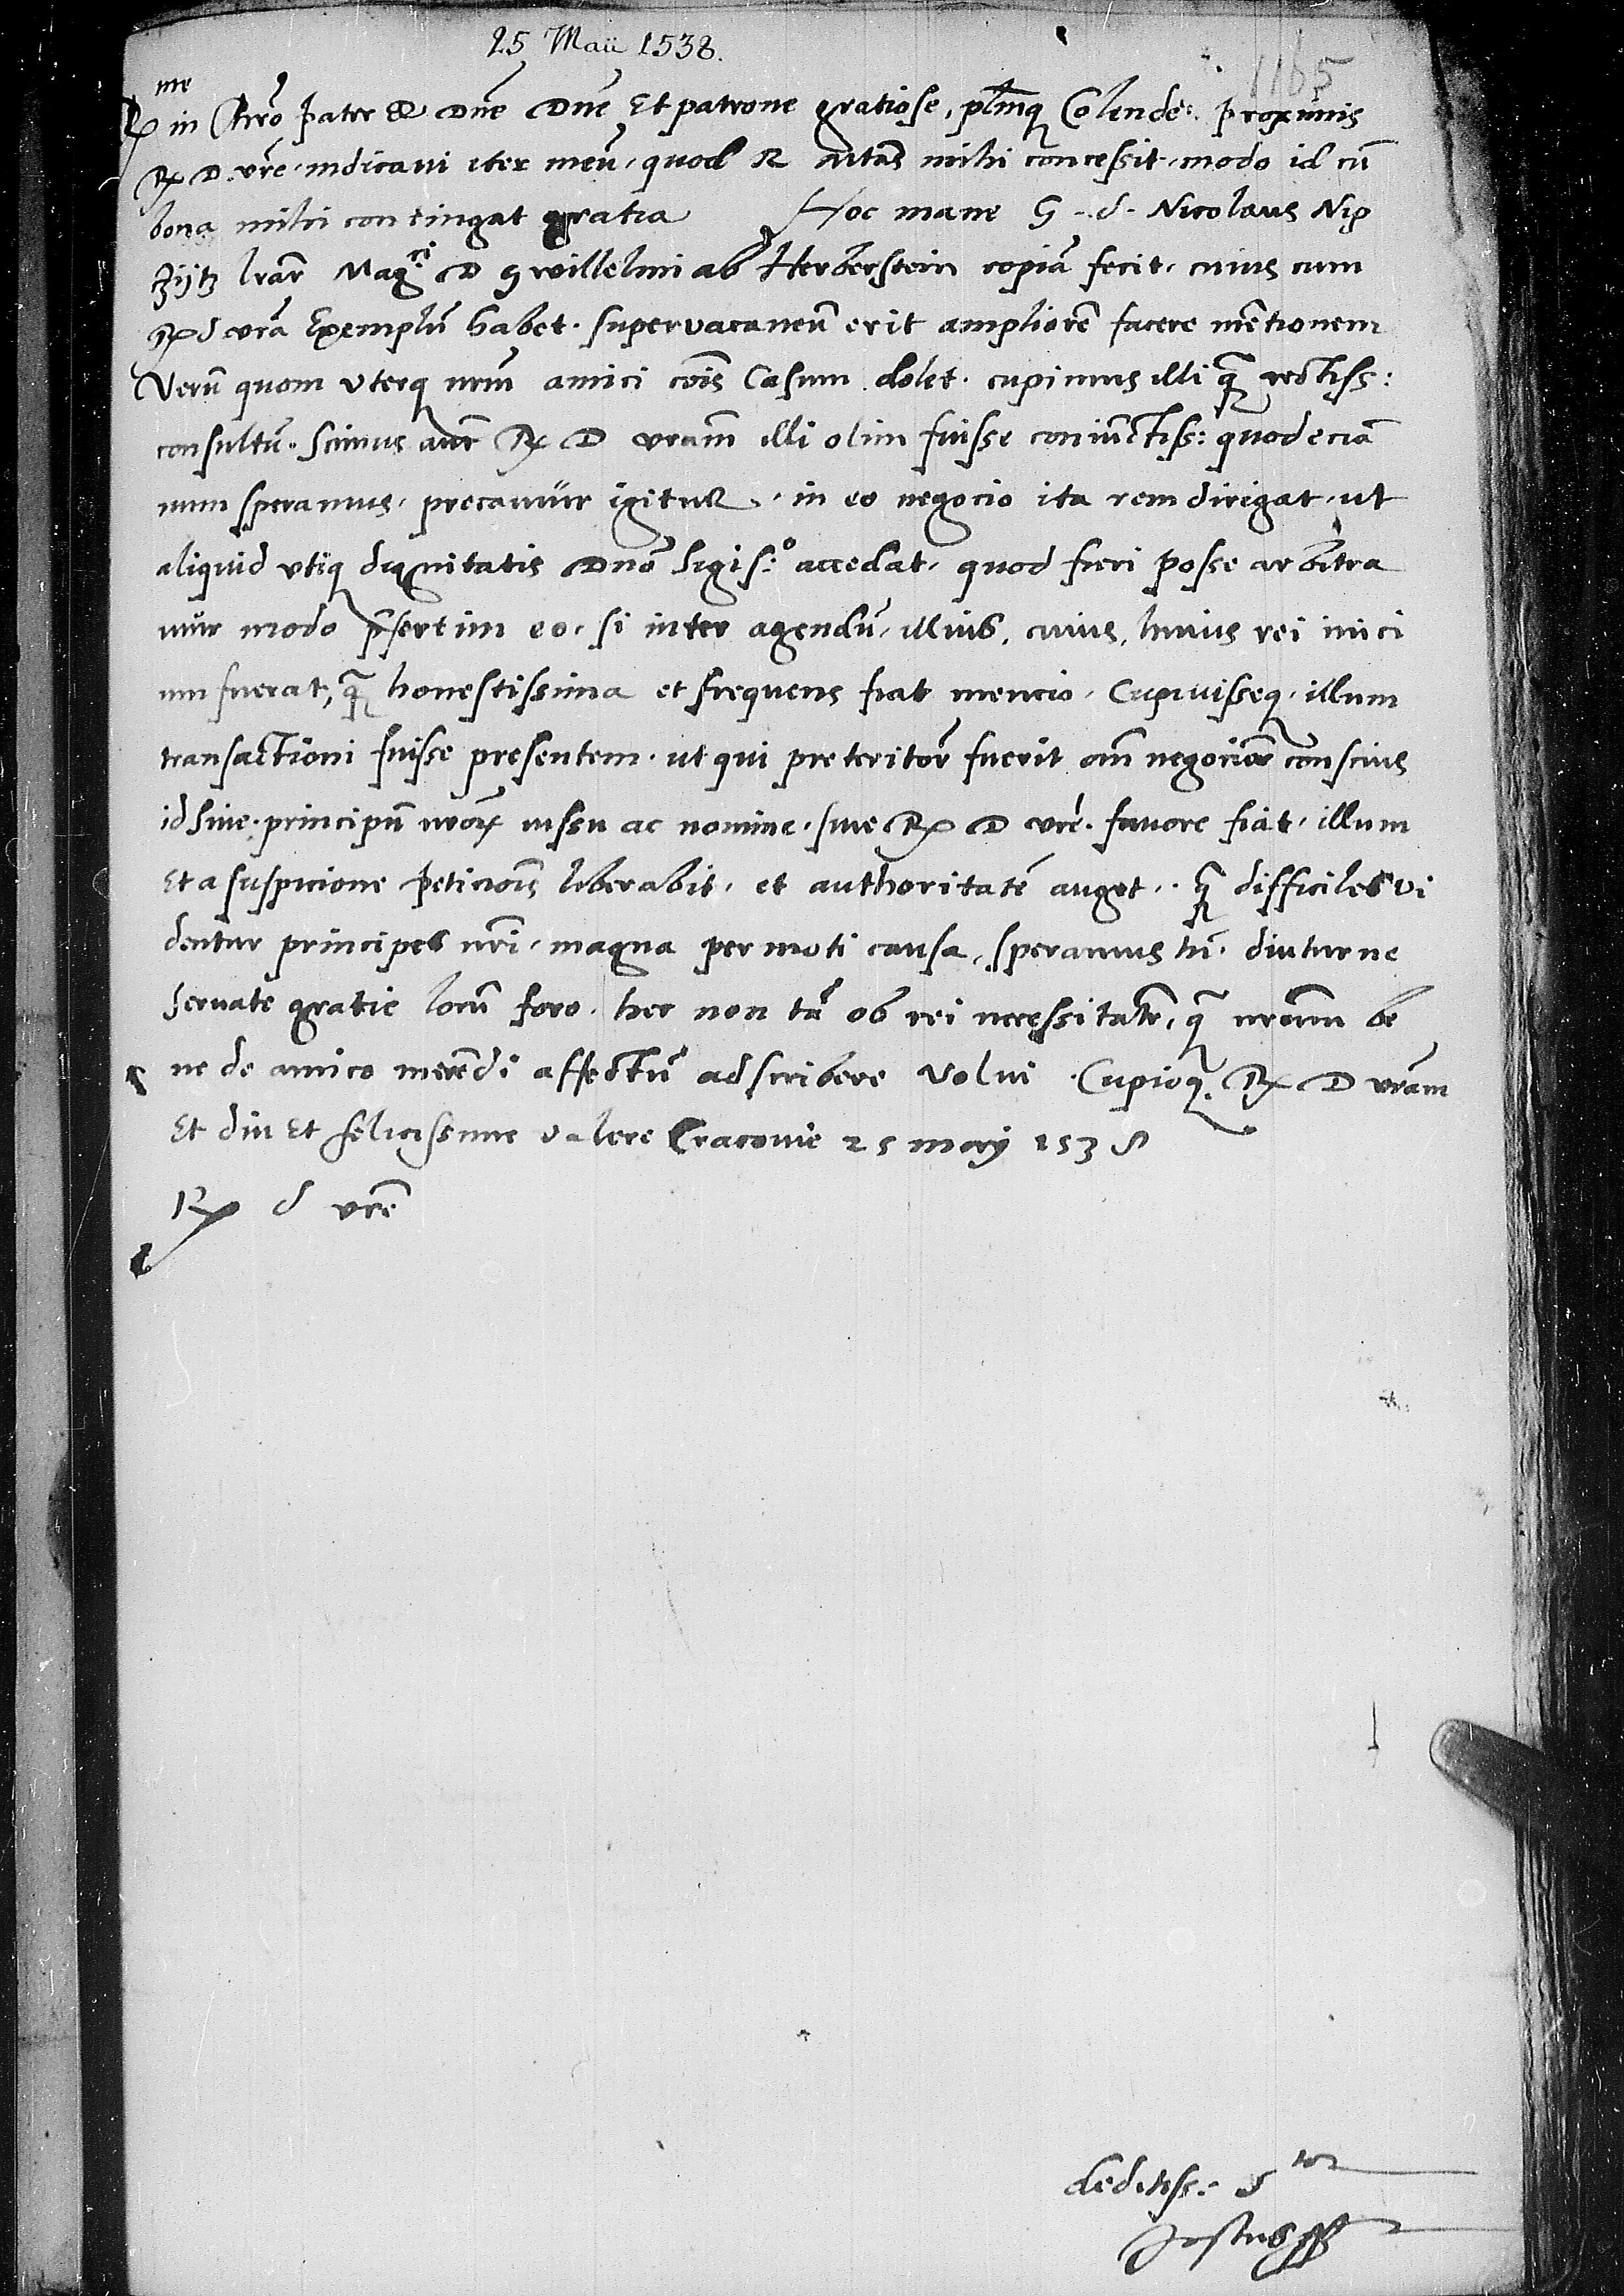 25 Maii 1538.
1165
R me in Chrō pater et Dne Dne Et patrone gratiose, plrimq Colende: proximis
Rx D. vre. indicavi iter meū, quod R Mtas mihi concessit. modo id cū
bona mihi contingat gratia Hoc mane G. d. Nicolaus Nip
tzijtz lrar Magci D Gwillelmi ab Herberstein copiā fecit. cuius cum
Rx d vrā Exemplū habet. supervacaneū erit ampliorē facere mētionem
Verū quom vterq nrm amici cōis Casum dolet. cupimus illi qȝ rectiss:
consultū. Scimus autē Rx D vram illi olim fuisse coniūctiss: quod eciā
num speramus. precamur igitur, in eo negocio ita rem dirigat. ut
aliquid vtiq dignitatis Dnō Sigis:o accedat. quod fieri posse arbitra
mur modo p̄sertim eo. si inter agendū, illius, cuius, huius rei inici
um fuerat, qȝ honestissima et frequens fiat mencio. Cupivisseq. illum
transactioni fuisse presentem. ut qui preteritor fuerit om negocior conscius
id sive. principū nror iussu ac nomine. sive Rx D vre. favore fiat. illum
Et a suspicione peticiōis liberabit. et authoritatē auget. qȝ difficiles vi
dentur principes nri. magna permoti causa, speramus tn. diuturne
servate gratie locū foro. hec non tā ob rei necessitatē, qȝ nrorum be
ne de amico merēdi affectū adscribere volui. Cupioq. Rx D vram
Et diu Et felicissime valere Cracovie 25 maij 1538
Rx d vre
deditiss: Stor
Jostus